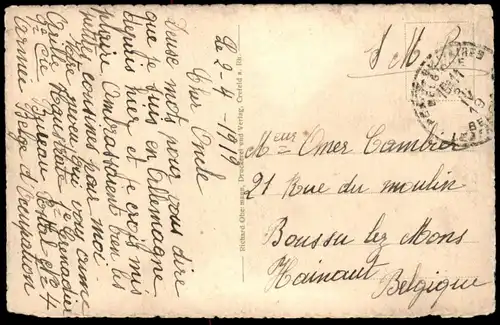 Le 2-4-1919
Cher Oncle
Deux mots pour vous dire
que je suis en Allemagne
depuis hier et je crois mis
plaire. Embrassement bien les
petites cousines pour moi
Votre neveu qui vous aime
Bureau Postal No 4
Armée Belge d'Occupation
Richard Obermann, Druckerei und Verlag, Crefeld a. Rh.
S M
Meur Omer Cambier
21 Rue du moulin
Boussu lez Mons
Hainaut
Belgique